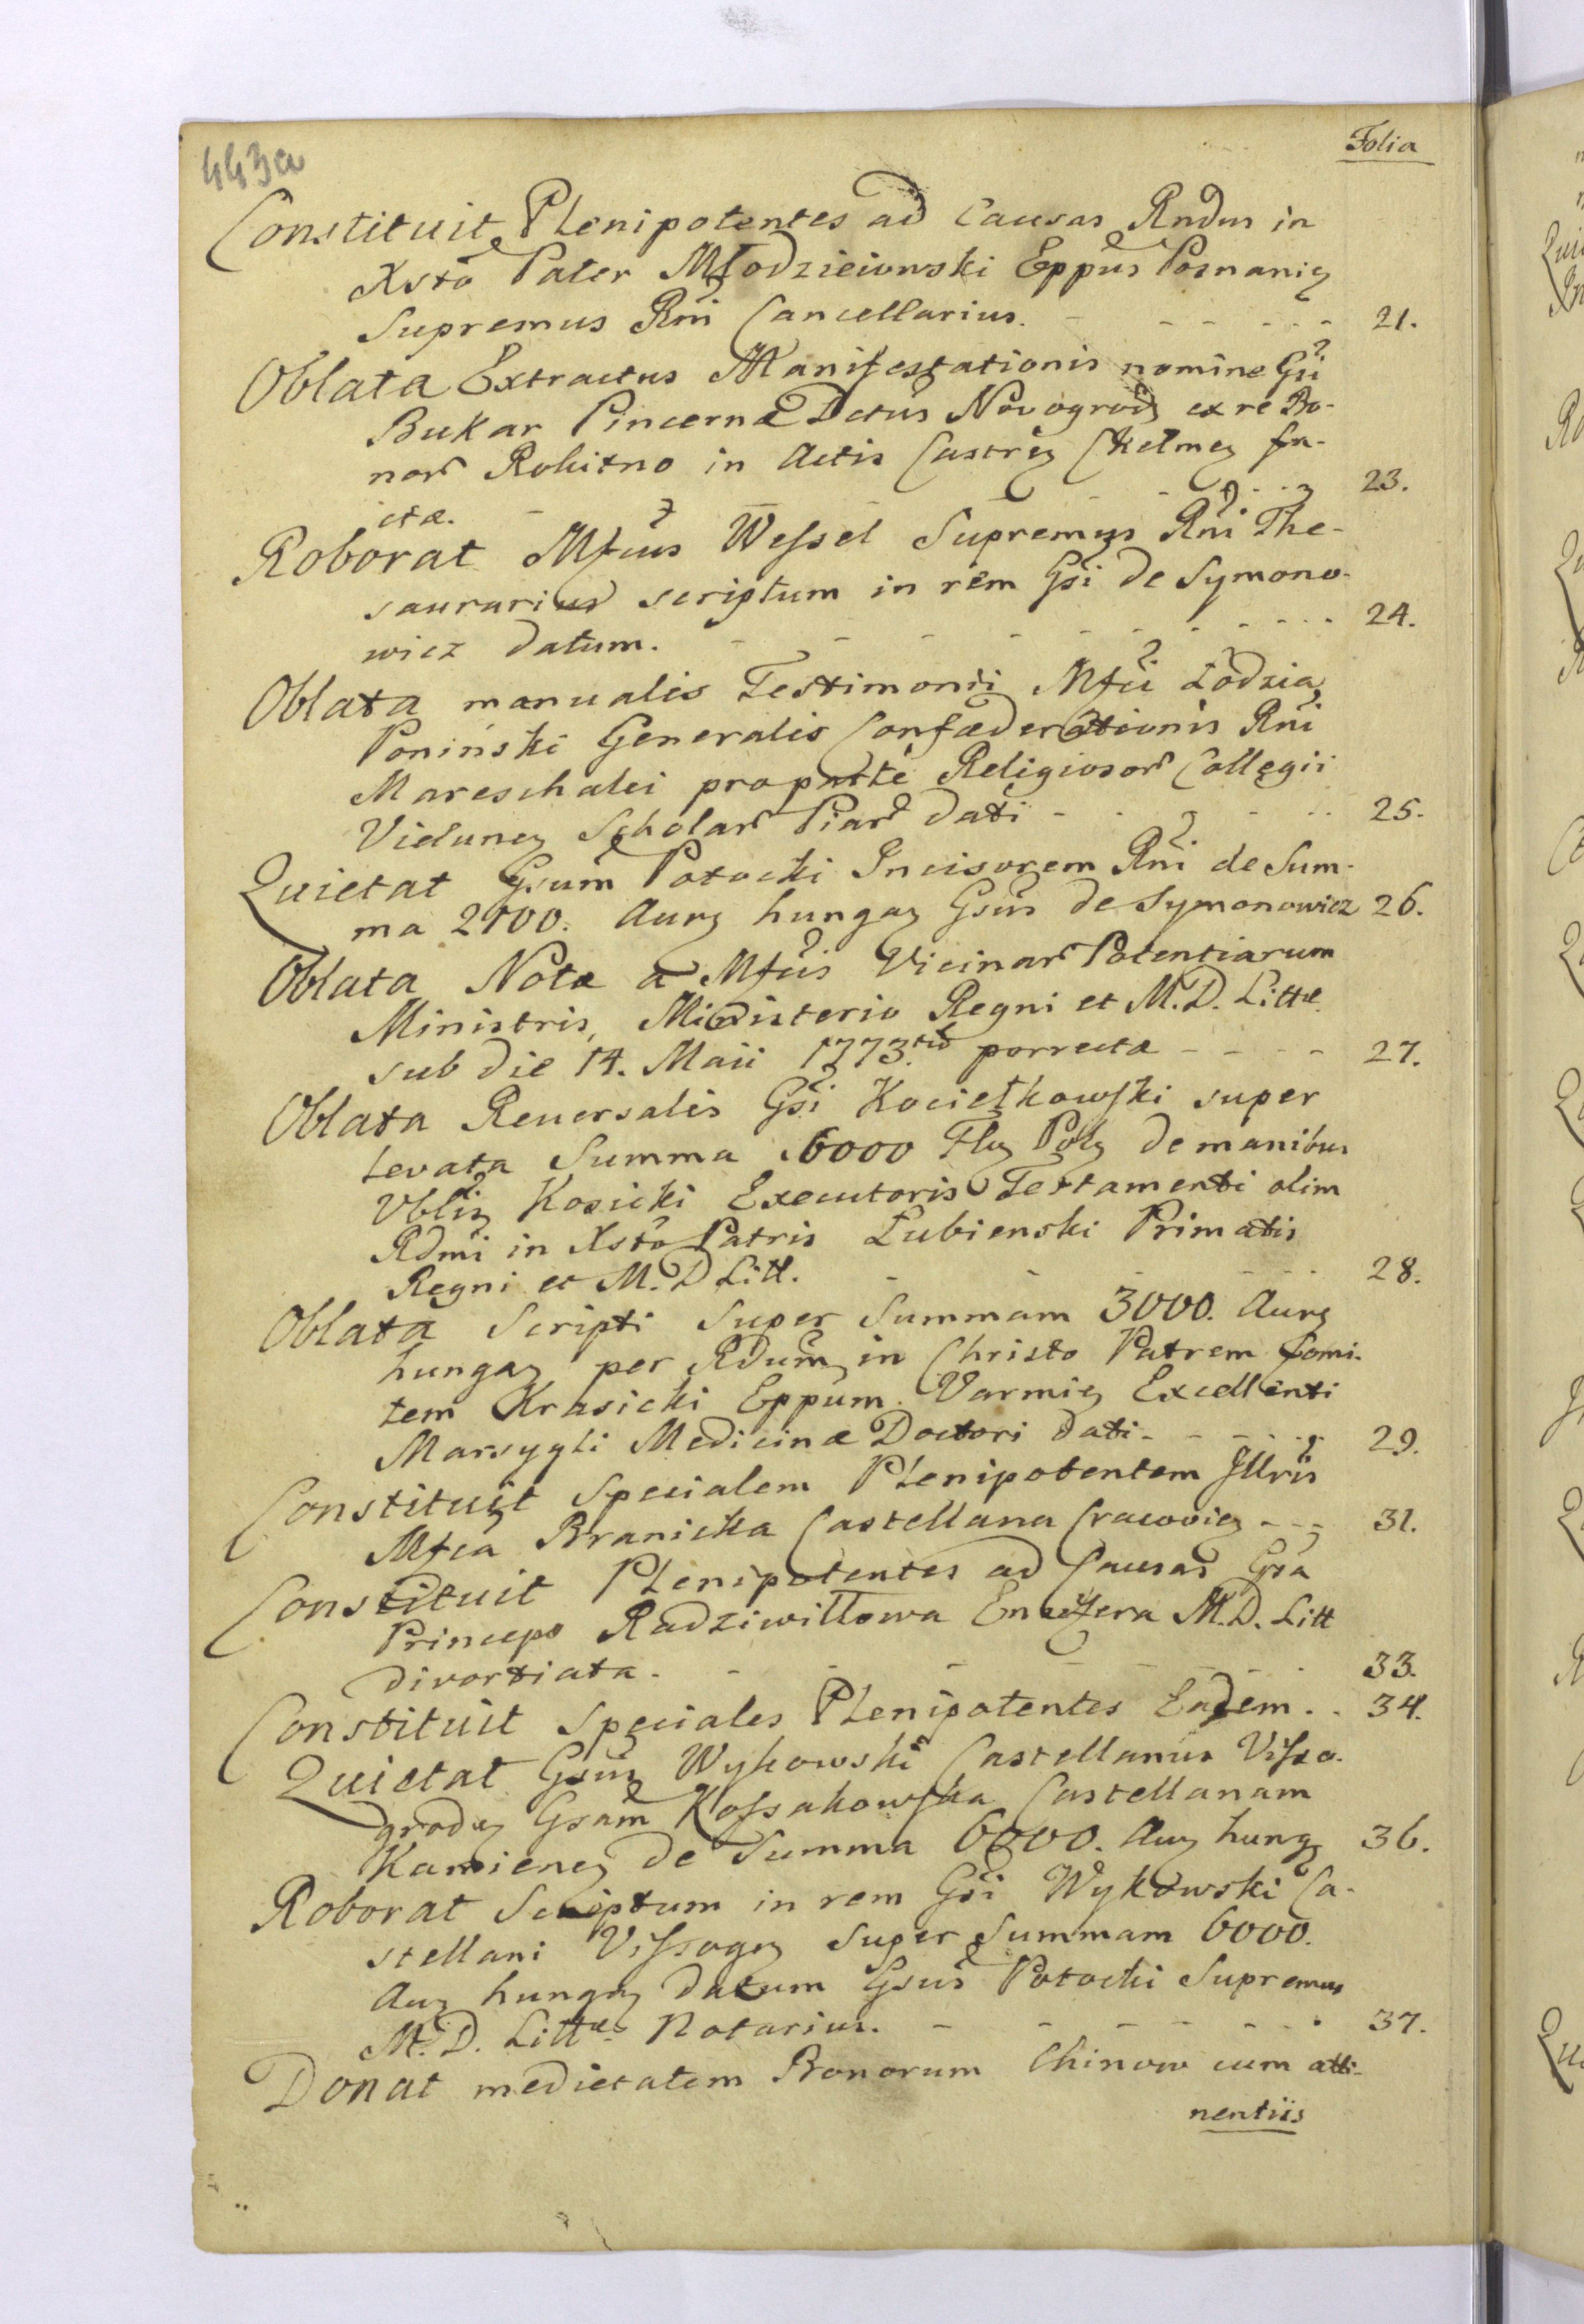 443a
Folia
Constituit Plenipotentes ad Causas Rndus in
Xsto Pater Młodzieiowski Eppus Posnanię
Supremus Rni Cancellarius. - - - - - - 21.
Oblata Extractus Manifestationis nomine Gsi
Bukar Pincernæ Dctus Novogrodę ex re Bo-
nor Rokitno in Actis Castrię Chelmeę fa-
ctæ. - - - - - 23.
Roborat Mfcus Wessel Supremus Rni The-
saurarius scriptum in rem Gsi de Symono-
wicz datum. - - - - - - - - - 24.
Oblata manualis Testimonii Mfci Łodzia
Poninski Generalis Confæderationis Rni
Mareschalci pro parte Religiosor Collegii
Vieluneę Scholar Piar dati - - - - - 25.
Quietat Gsum Potocki Incisorem Rni de Sum-
ma 2100. Aurę hungaę Gsus de Symonowicz 26.
Oblata Notæ a Mfcis Vicinar Potentiarum
Ministris, Ministerio Regni et M. D. Littæ
sub die 14. Maii 1773.tio porrectæ - - - - 27.
Oblata Reversalis Gsi Kociełkowski super
levata Summa 6000 Flę Polę de manibus
Vblię Kosicki Executoris Testamenti olim
Rdmi in Xsto Patris Łubienski Primatis
Regni et M. D Litt. - - - - - 28.
Oblata Scripti Super Summam 3000. Aurę
hungaę per Rdum in Christo Patrem Comi-
tem Krasicki Eppum Varmię Excellenti
Marsygli Medicinæ Doctori dati - - - - - 29.
Constituit Specialem Plenipotentem Illris
Mfca Branicka Castellana Cracovię - - - 31.
Constituit Plenipotentes ad Causas Gsa
Princeps Radziwiłłowa Ensifera M. D. Litt
divortiata. - - - - - - - 33.
Constituit Speciales Plenipotentes Eadem . . 34.
Quietat Gsus Wykowski Castellanus Visso-
grodę Gsam Kossakowska Castellanam
Kamieneę de Summa 6000. Auę hungę 36.
Roborat Scriptum in rem Gsi Wykowski Ca-
stellani Vissogę Super Summam 6000.
Auę hungaę datum Gsus Potocki Supremus
M. D. Littæ Notarius. - - - - - - - 37.
Donat medietatem Bonorum Chinow cum atti-
nentiis